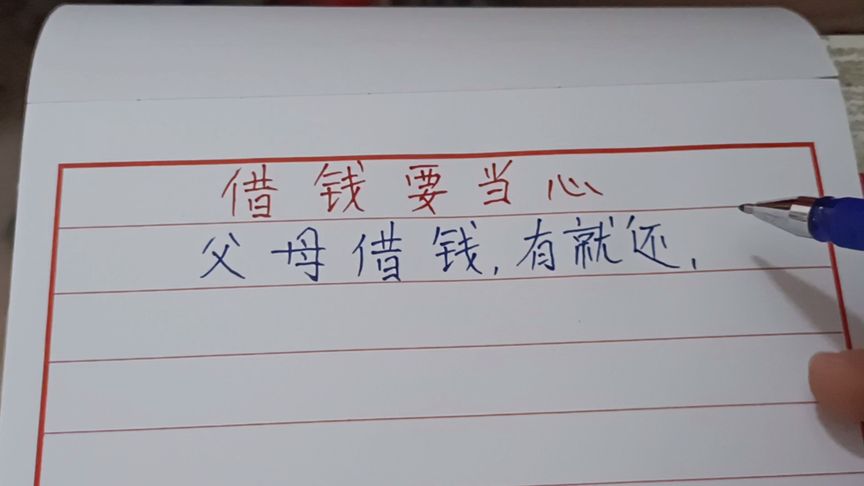 借钱要当心
父母借钱,有就还,